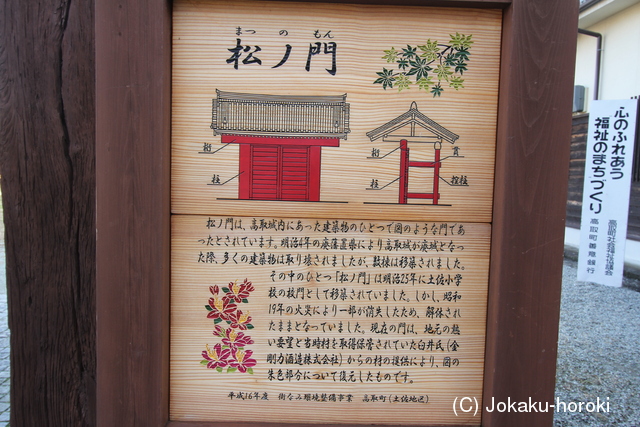 まつのもん
松ノ門
桁
柱
桁
貫
柱
控柱
松ノ門は、高取城内にあった建築物のひとつで図のような門であ
ったとされています。明治4年の廃藩置県により高取城が廃城となっ
た際、多くの建築物は取り壊されましたが、数棟は移築されました。
その中のひとつ「松ノ門」は明治25年に土佐小学
校の校門として移築されていました。しかし、昭和
19年の火災により一部が消失したため、解体され
たままとなっていました。現在の門は、地元の熱
い要望と当時材を取得保管されていた臼井氏(金
剛力酒造株式会社)からの材の提供により、図の
朱色部分について復元したものです。
平成16年度 街なみ環境整備事業 高取町(土佐地区)
心のふれあう
福祉のまちづくり
高取町社会福祉協議会
高取町善意銀行
(C) Jokaku-horoki